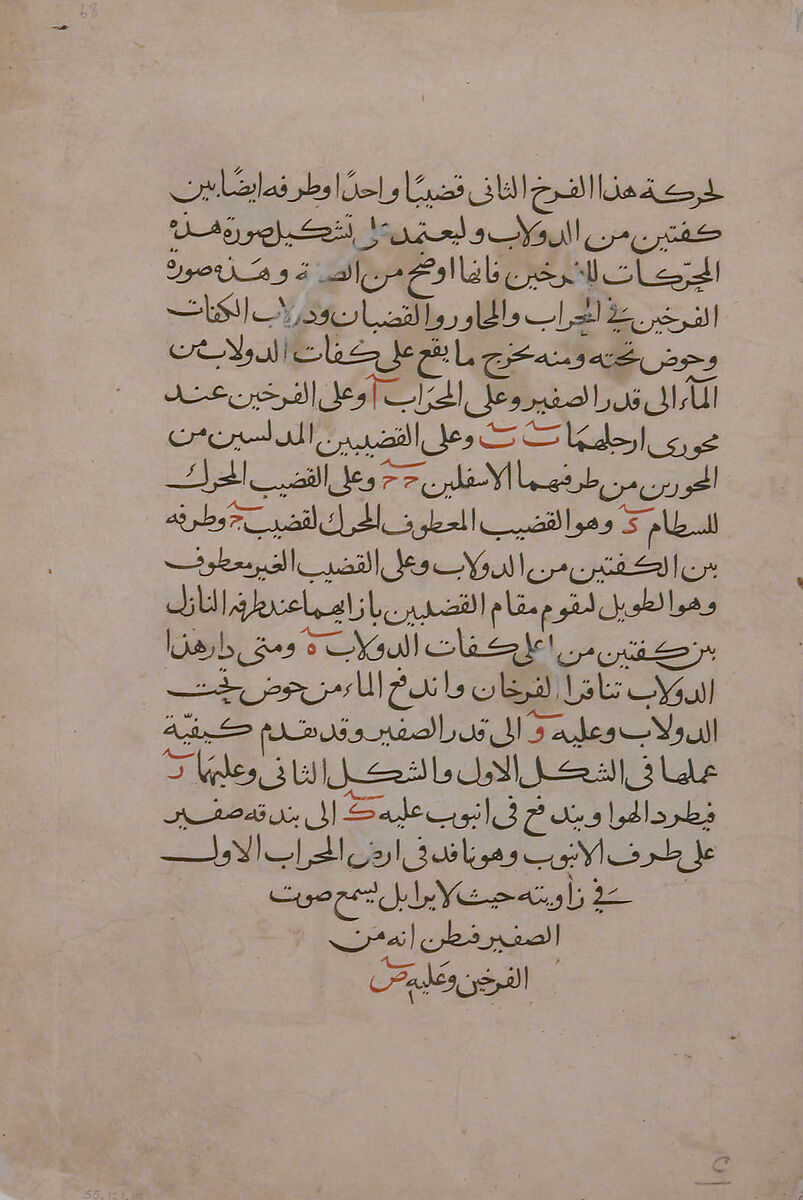 لحركة هذا الفرخ الثانى قضيبًا واحدًا وطرفه ايضًا بين
كفتين من الدولاب وليعتمد على تشكيل صورة هذه
المحرّكات للفرخين فانها اوضح من الصفة وهَذه صورة
الفرخين فى المحراب والمحاور والقضبان ودولاب الكفات
وحوض تحته ومنه يخرج ما يقع على كفات الدولاب من
المآء الى قدر الصفير وعلى المحرَاب آ وعلى الفرخين عند
محورى ارجلهمَا ب ب وعلى القضيبين المدلسين من
المحورين من طرفيهما الاسفلين ح ح وعلى القضيب المحرك
للسطام د وهو القضيب المعطوف المحرك لقضيب ح وطرفه
بين الكفتين من الدولاب وعلى القضيب الغير معطوف
وهو الطويل ليقوم مقام القضيبين بازايهما عند طرفه النازل
بين كفتين من اعلى كفات الدولاب ه ومتى دار هذا
الدولاب تناقرا الفرخان واندفع الماء من حوض تحت
الدولاب وعليه و الى قدر الصفير وقد تقدم كيفيّة
عملها فى الشكل الاول والشكل الثانى وعليهَا ز
فيطرد الهوا ويندفع فى انبوب عليه ك الى بندقه صفير
على طرف الانبوب وهو نافد فى ارض المحراب الاول
فى زاويته حيث لا يرا بل يسمع صوت
الصفير فيظن انه من
الفرخين وعليه ص
68
55.121.
C